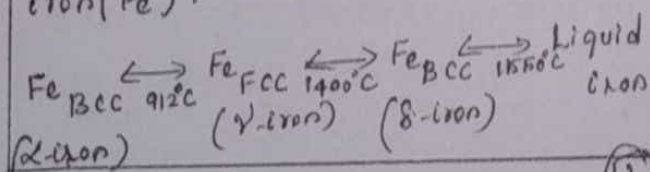 iron(Fe)
Fe BCC ⟷ 912°C Fe FCC ⟷ 1400°C Fe BCC ⟷ 1550°C Liquid iron
(α-iron) (γ-iron) (δ-iron)